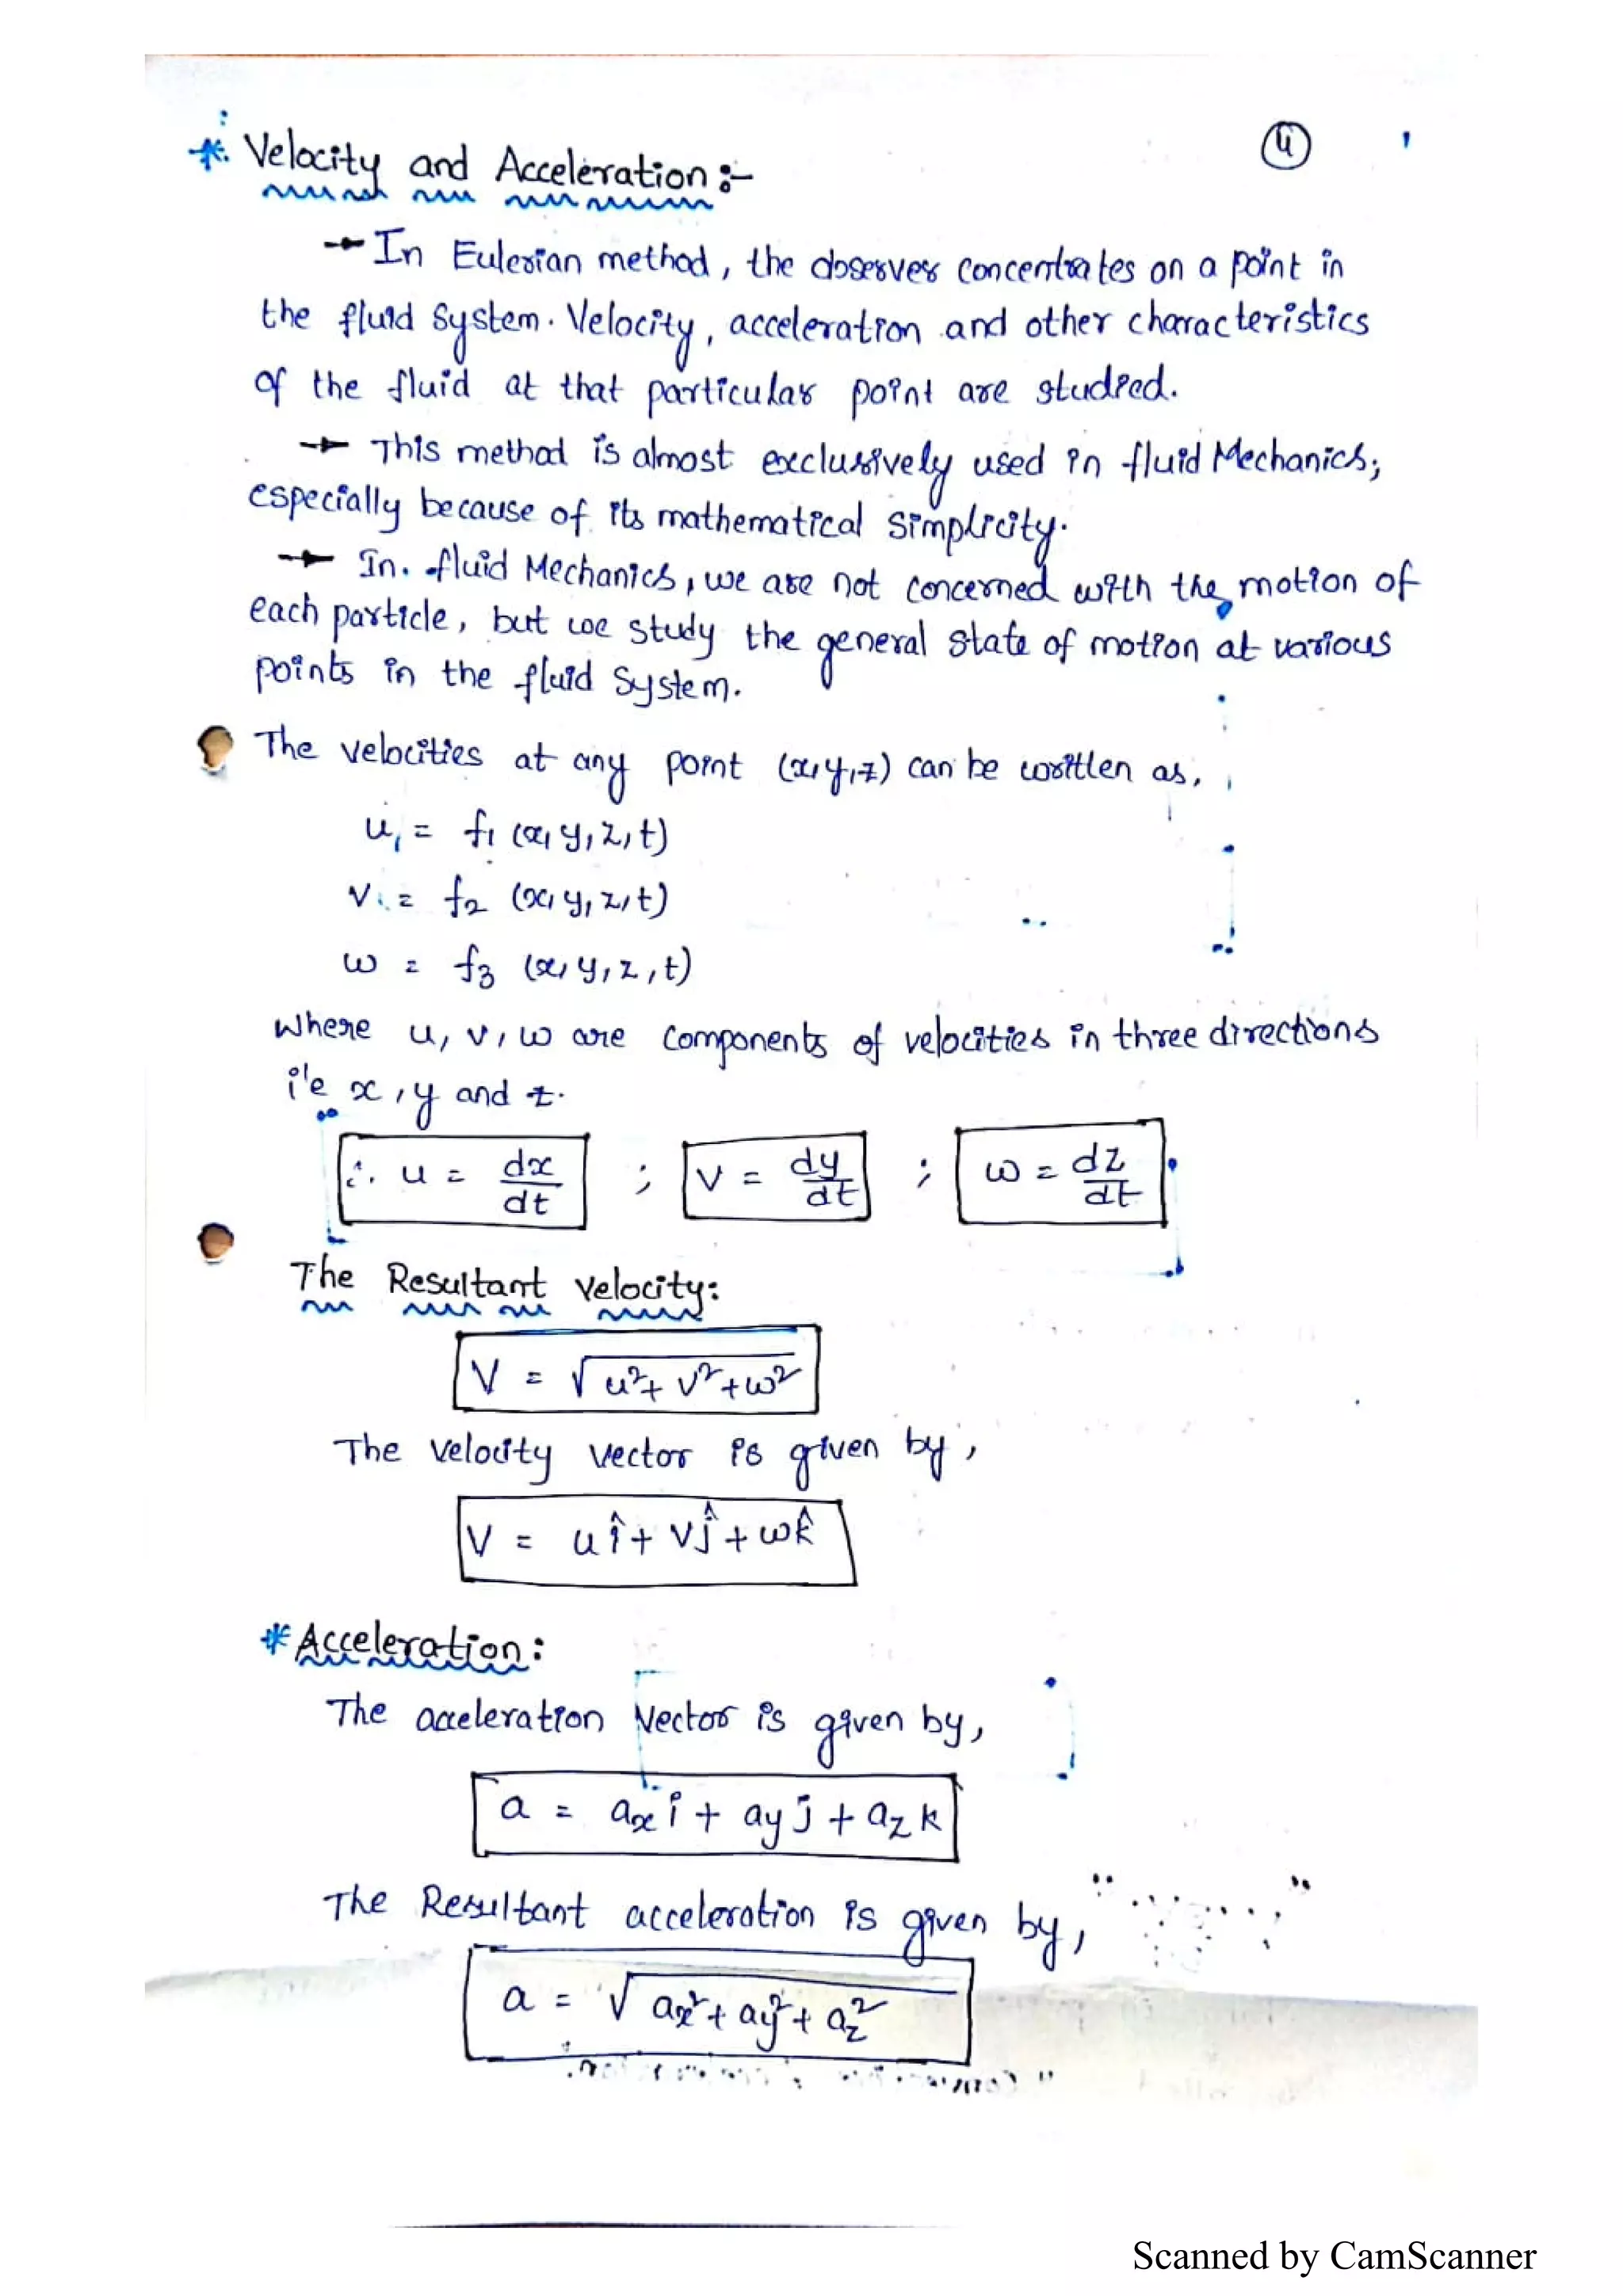 *. Velocity and Acceleration :-
4
→ In Eulerian method, the observer concentrates on a point in
the fluid system. Velocity, acceleration and other characteristics
of the fluid at that particular point are studied.
→ This method is almost exclusively used in fluid Mechanics,
especially because of its mathematical simplicity.
→ In. fluid Mechanics, we are not concerned with the motion of
each particle, but we study the general state of motion at various
points in the fluid system.
The velocities at any point (x,y,z) can be written as,
u, = f1 (x, y, z, t)
v = f2 (x, y, z, t)
w = f3 (x, y, z, t)
where u, v, w are components of velocities in three directions
i'e x, y and z.
∴ u = dx/dt ; v = dy/dt ; w = dz/dt
The Resultant velocity:
V = √u²+ v²+w²
The velocity vector is given by,
V = uî + vĵ + wk̂
* Acceleration:
The acceleration vector is given by,
a = ax i + ay j + az k
The Resultant acceleration is given by,
a = √ax²+ ay²+ az²
Scanned by CamScanner